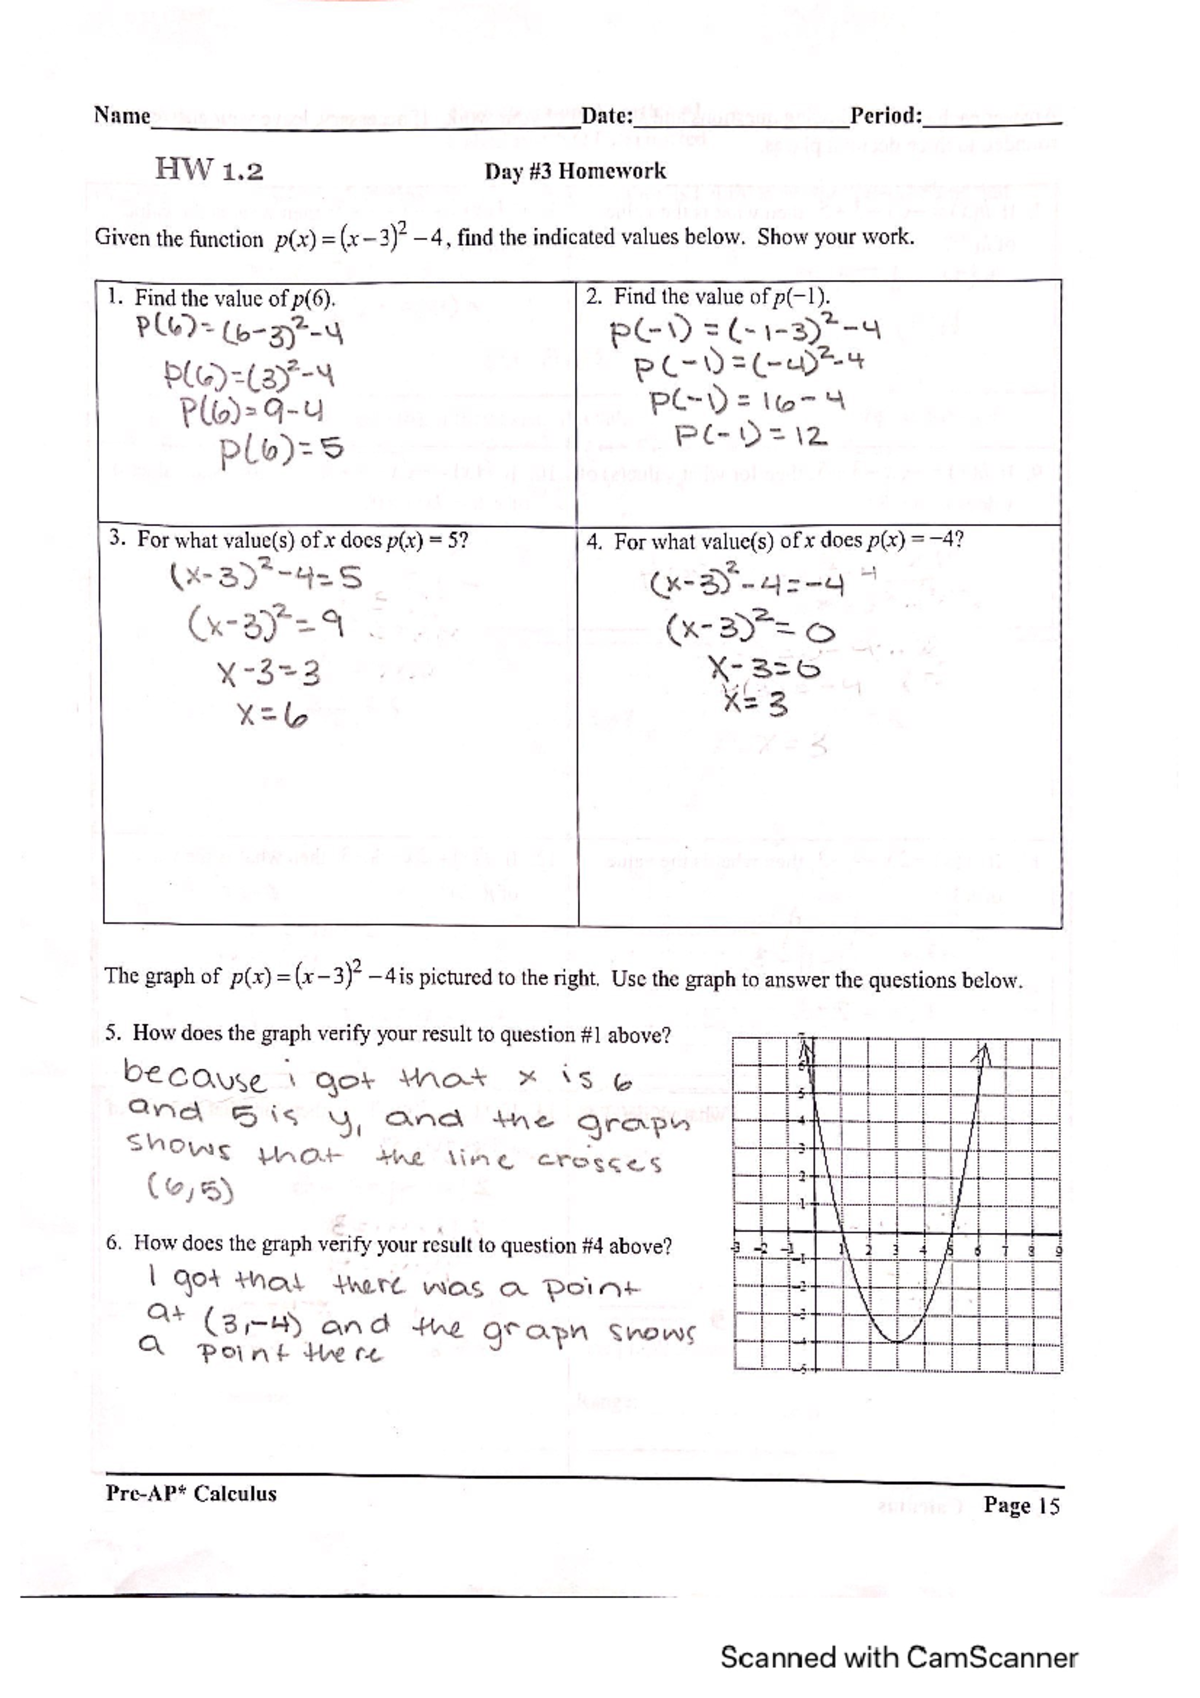 Name____ Date:____ Period:____
HW 1.2 Day #3 Homework
Given the function p(x) = (x – 3)² – 4, find the indicated values below. Show your work.
1. Find the value of p(6).
P(6) = (6-3)² - 4
p(6) = (3)² - 4
P(6) = 9 - 4
p(6) = 5
2. Find the value of p(−1).
p(-1) = (-1-3)² - 4
p(-1) = (-4)² - 4
p(-1) = 16 - 4
P(-1) = 12
3. For what value(s) of x does p(x) = 5?
(x-3)² - 4 = 5
(x-3)² = 9
x - 3 = 3
x = 6
4. For what value(s) of x does p(x) = −4?
(x-3)² - 4 = -4 4
(x-3)² = 0
x - 3 = 0
x = 3
The graph of p(x) = (x – 3)² – 4 is pictured to the right. Use the graph to answer the questions below.
5. How does the graph verify your result to question #1 above?
because i got that x is 6
and 5 is y, and the graph
shows that the line crosses
(6,5)
6. How does the graph verify your result to question #4 above?
I got that there was a point
at (3,-4) and the graph shows
a point there
7
6
5
4
3
2
1
-3 -2 -1 1 2 3 4 5 6 7 8 9
-1
-2
-3
-4
-5
Pre-AP* Calculus
Page 15
Scanned with CamScanner